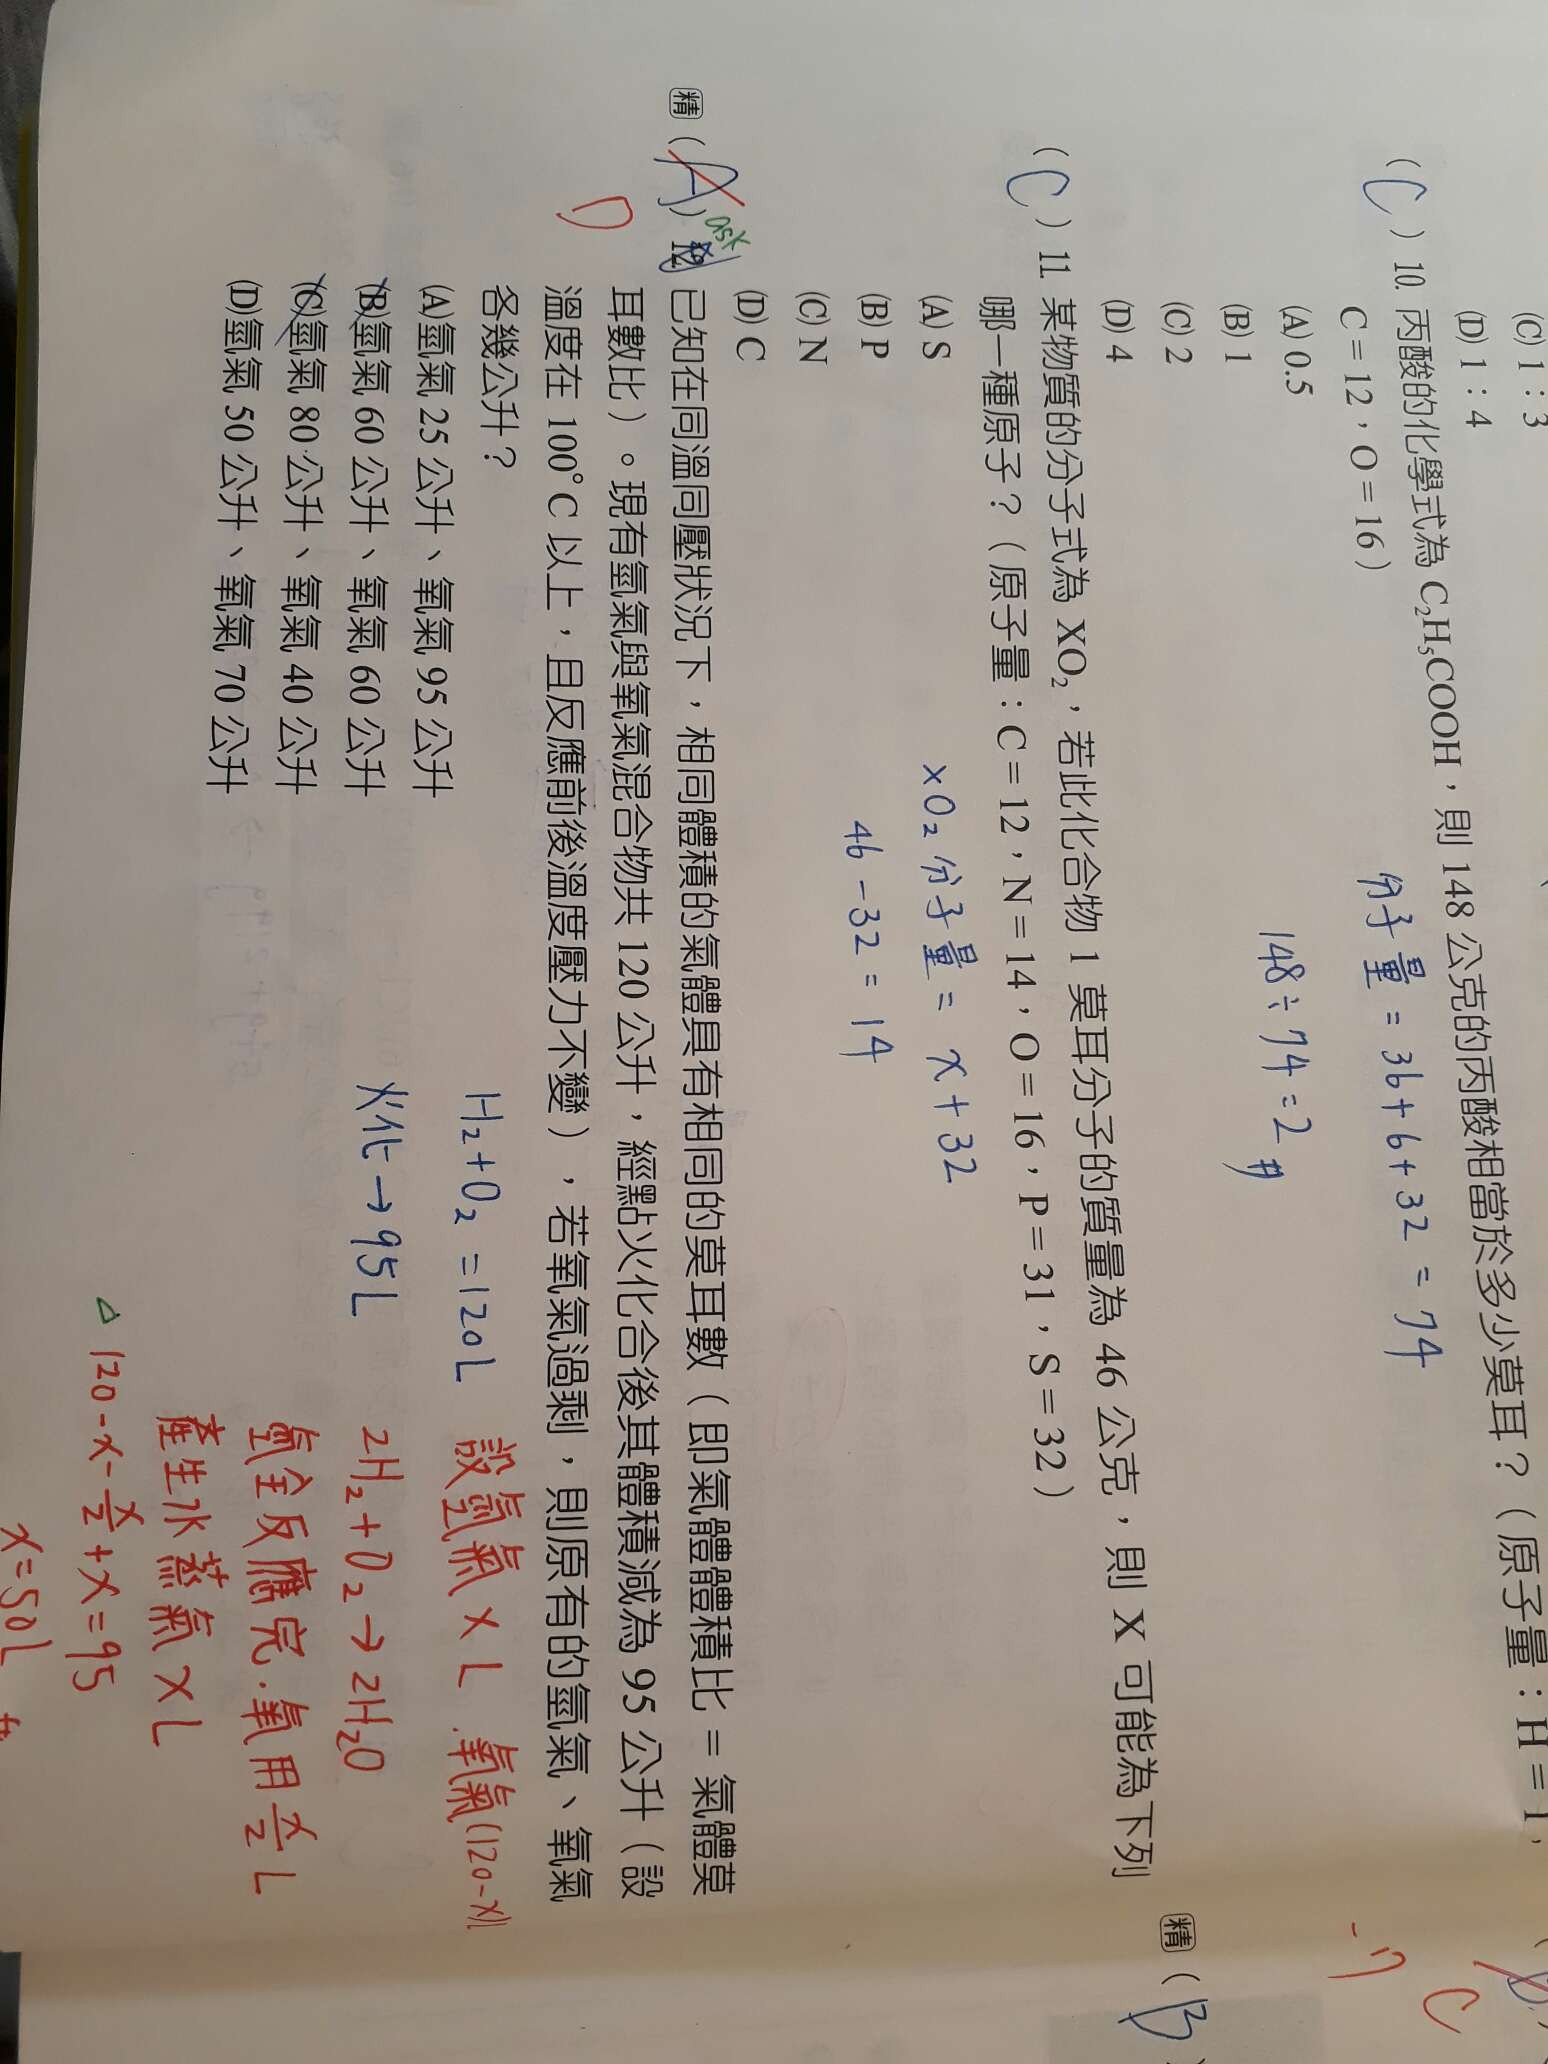 (C) 1:3
(D) 1:4
( C ) 10. 丙酸的化學式為 C₂H₅COOH,則 148 公克的丙酸相當於多少莫耳?(原子量:H=1,
C=12,O=16)
分子量 = 36+6+32 = 74
(A) 0.5
148÷74=2
(B) 1
(C) 2
(D) 4
( C ) 11. 某物質的分子式為 XO₂,若此化合物 1 莫耳分子的質量為 46 公克,則 X 可能為下列
哪一種原子?(原子量:C=12,N=14,O=16,P=31,S=32)
(A) S
XO₂分子量 = x+32
(B) P
46-32=14
(C) N
(D) C
精 ( A ) ask 12. 已知在同溫同壓狀況下,相同體積的氣體具有相同的莫耳數(即氣體體積比=氣體莫
耳數比)。現有氫氣與氧氣混合物共 120 公升,經點火化合後其體積減為 95 公升(設
D
溫度在 100°C 以上,且反應前後溫度壓力不變),若氧氣過剩,則原有的氫氣、氧氣
各幾公升?
(A)氫氣 25 公升、氧氣 95 公升
(B)氫氣 60 公升、氧氣 60 公升
(C)氫氣 80 公升、氧氣 40 公升
(D)氫氣 50 公升、氧氣 70 公升
H₂+O₂=120L
火化→95L
設氫氣 x L . 氧氣 (120-x)L
2H₂+O₂→2H₂O
氫全反應完.氧用 x/2 L
產生水蒸氣 x L
△ 120-x-x/2+x=95
x=50L
精 ( B
C